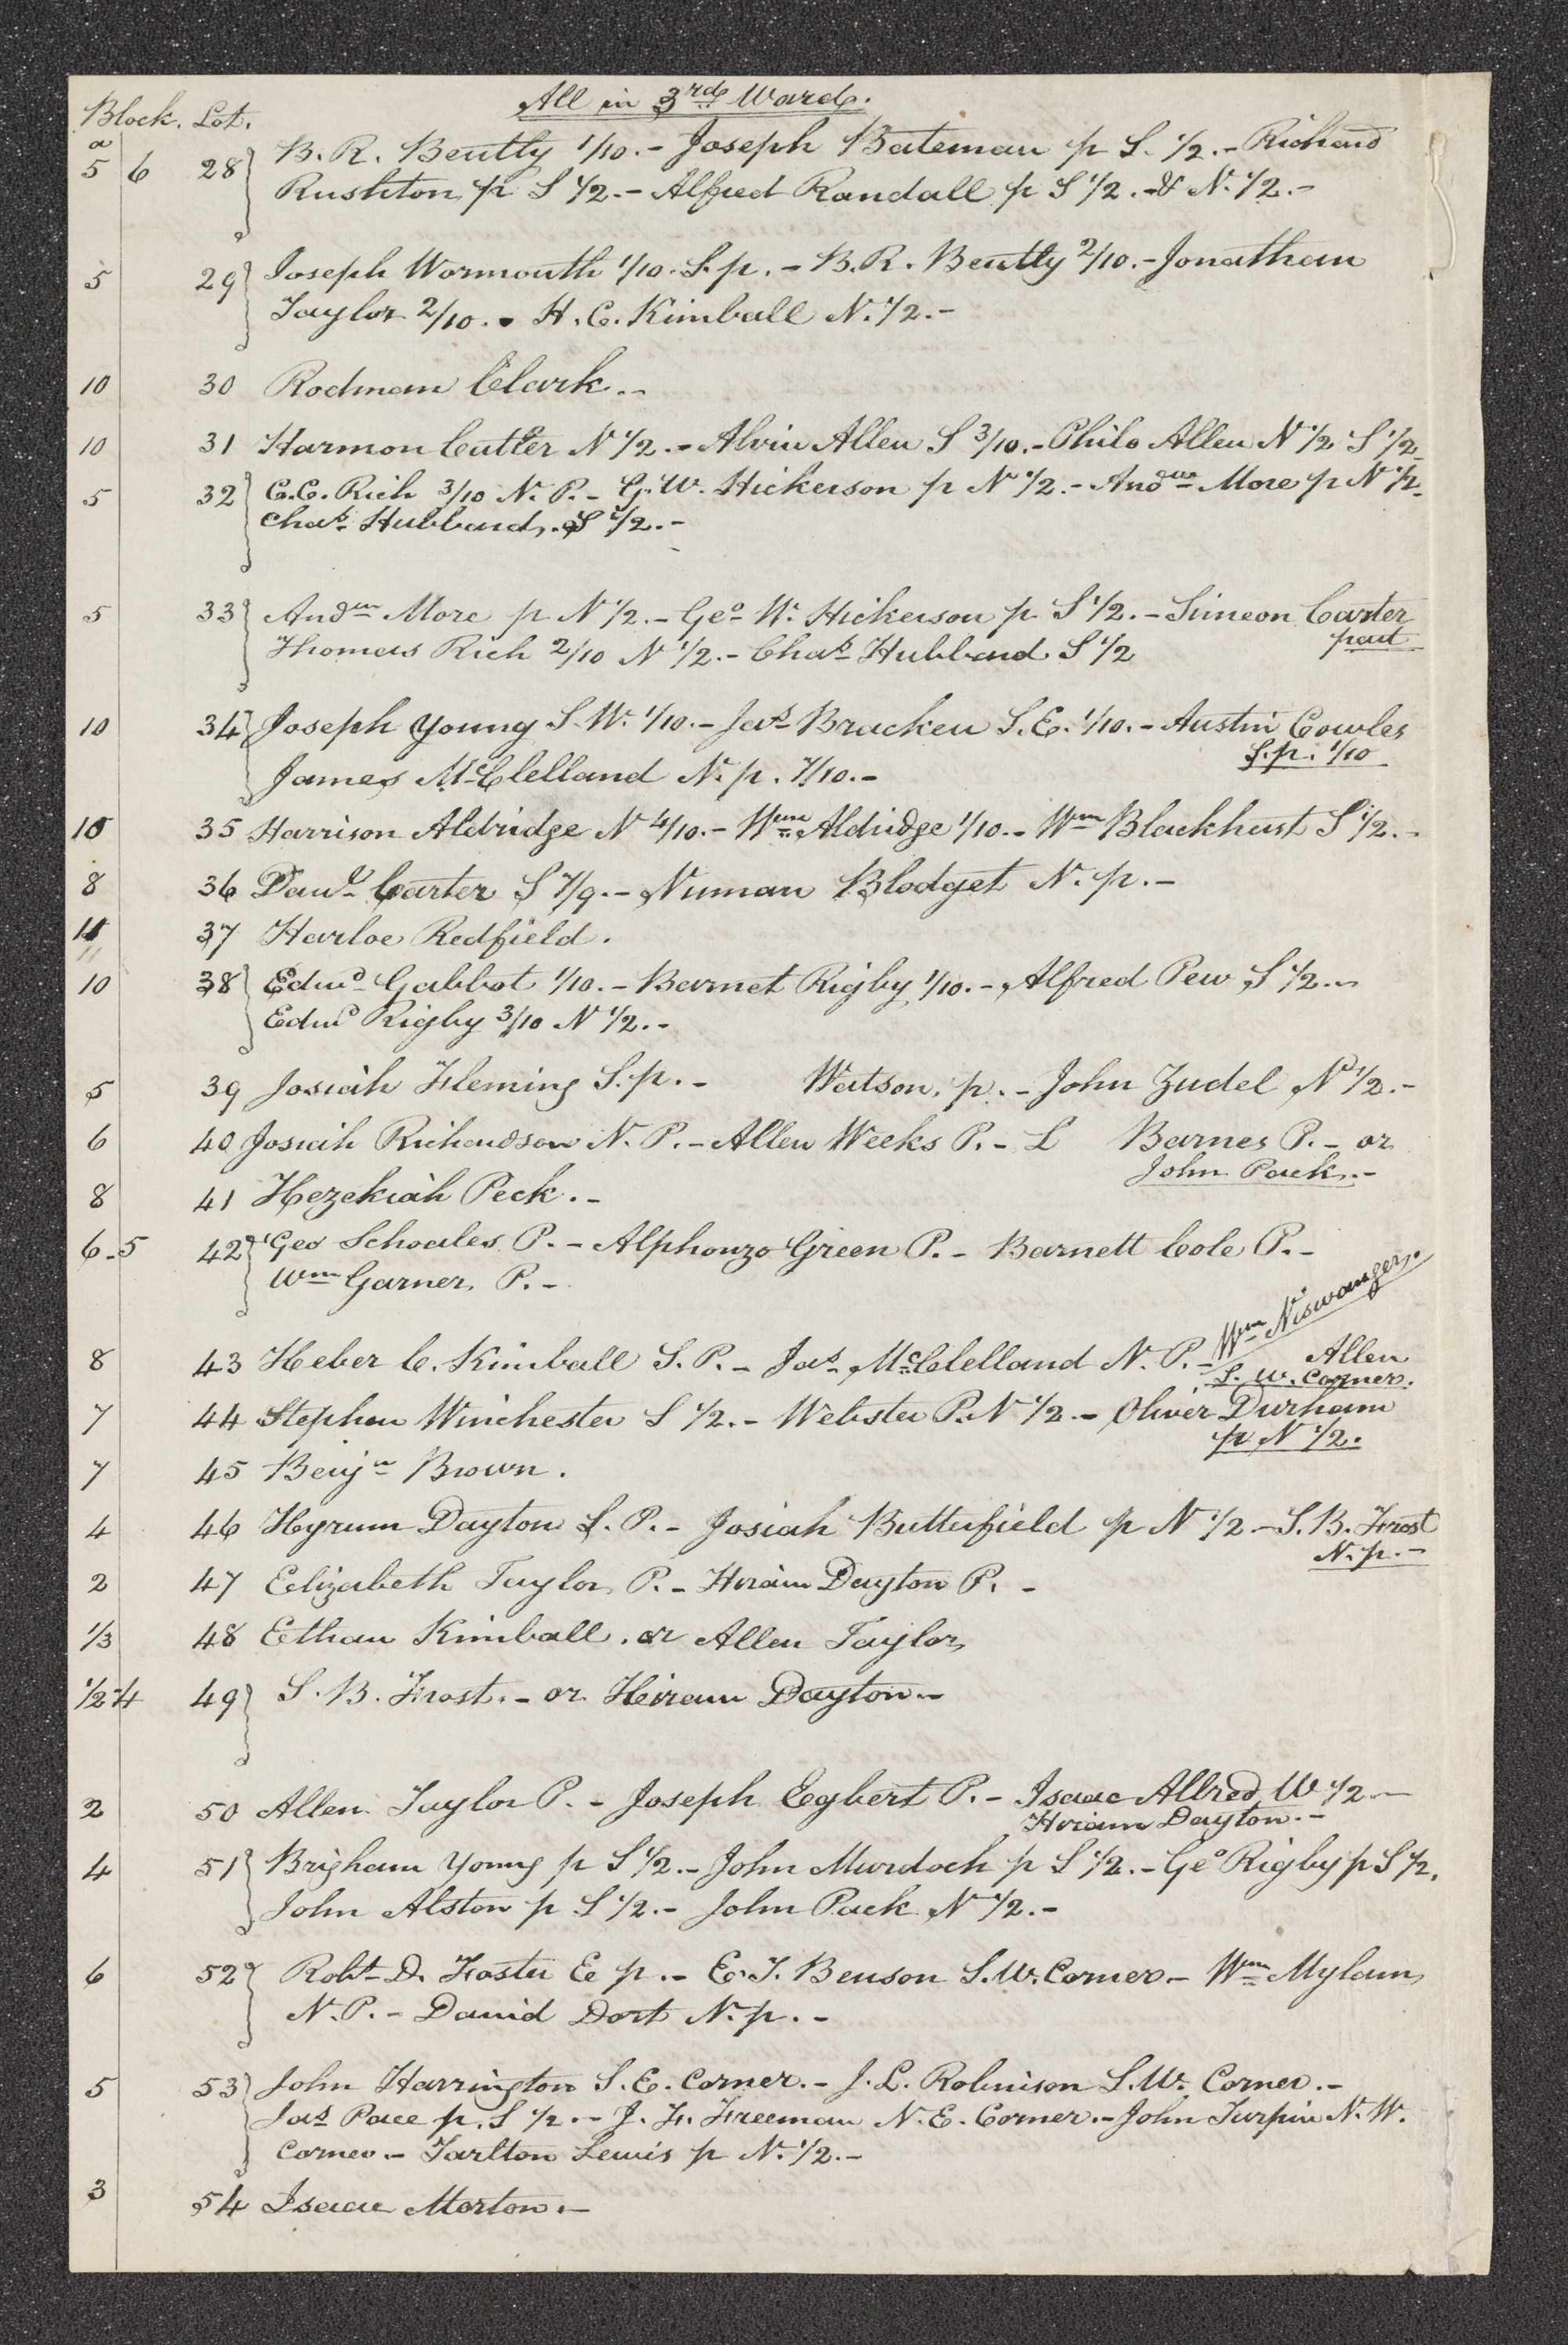 All in 3rd Ward.
Block. Lot.
a
5 6 28 B. R. Bentley 1/10.- Joseph Bateman p S. 1/2.- Richard
Rushton p S 1/2.- Alfred Randall p S 1/2.-& N. 1/2.-
5 29 Joseph Wormouth 1/10. S. p.- B. R. Bentley 2/10.- Jonathan
Taylor 2/10.- H. C. Kimball N. 1/2.-
10 30 Rodman Clark.-
10 31 Harmon Cutler N 1/2.- Alvin Allen S 3/10.- Philo Allen N 1/2 S 1/2
5 32 C. C. Rich 3/10 N. P.- G. W. Hickerson p N 1/2.- Andw More p N 1/2-
Chas. Hubbard. S 1/2.-
5 33 Andw More p N 1/2.- Geo W. Hickerson p S 1/2.- Simeon Carter
part
Thomas Rich 2/10 N 1/2.- Chas Hubbard S 1/2
10 34 Joseph Young S. W. 1/10.- Jas Bracken S. E. 1/10.- Austin Cowles
S. p. 1/10
James McClelland N. p. 7/10.-
10 35 Harrison Aldridge N 4/10.- Wm Aldridge 1/10.- Wm Blackhust S 1/2.-
8 36 Danl Carter S 7/9.- Numan Blodget N. p.-
11 37 Harloe Redfield.
10 38 Edwd Gabbot 1/10.- Barnet Rigby 1/10.- Alfred Pew S 1/2.-
Edwd Rigby 3/10 N 1/2.-
5 39 Josiah Fleming S. p.- Watson, p.- John Zudel N 1/2.-
6 40 Josiah Richardson N. P.- Allen Weeks P.- L Barnes P.- or
John Pack.-
8 41 Hezekiah Peck.-
6-5 42 Geo Schoales P.- Alphonzo Green P.- Barnett Cole P.-
Wm Garner P.-
Wm Niswanger.
8 43 Heber C. Kimball S. P.- Jas McClelland N. P.- Allen
S. W. Corner.
7 44 Stephen Winchester S 1/2.- Webster P. N 1/2.- Oliver Durham
p N 1/2.
7 45 Benjn Brown.
4 46 Hyrum Dayton S. P.- Josiah Butterfield p N 1/2.- S. B. Frost
N. p.-
2 47 Elizabeth Taylor P.- Hiram Dayton P.-
1/3 48 Ethan Kimball. or Allen Taylor
1/2-4 49 S. B. Frost.- or Heiram Dayton.-
2 50 Allen Taylor P.- Joseph Egbert P.- Isaac Allred W 1/2.-
Hiram Dayton.-
4 51 Brigham Young p S 1/2.- John Murdoch p S 1/2.- Geo Rigby p S 1/2.
John Alston p S 1/2.- John Pack N 1/2.-
6 52 Robt D. Foster E p.- E. T. Benson S. W. Corner.- Wm Mylam
N. P.- David Dort N. p.-
5 53 John Harrington S. E. Corner.- J. L. Robinson S. W. Corner.-
Jas Pace p. S 1/2.- J. F. Freeman N. E. Corner.- John Turpin N. W.
Corner.- Tarlton Lewis p N. 1/2.-
3 54 Isaac Morton.-